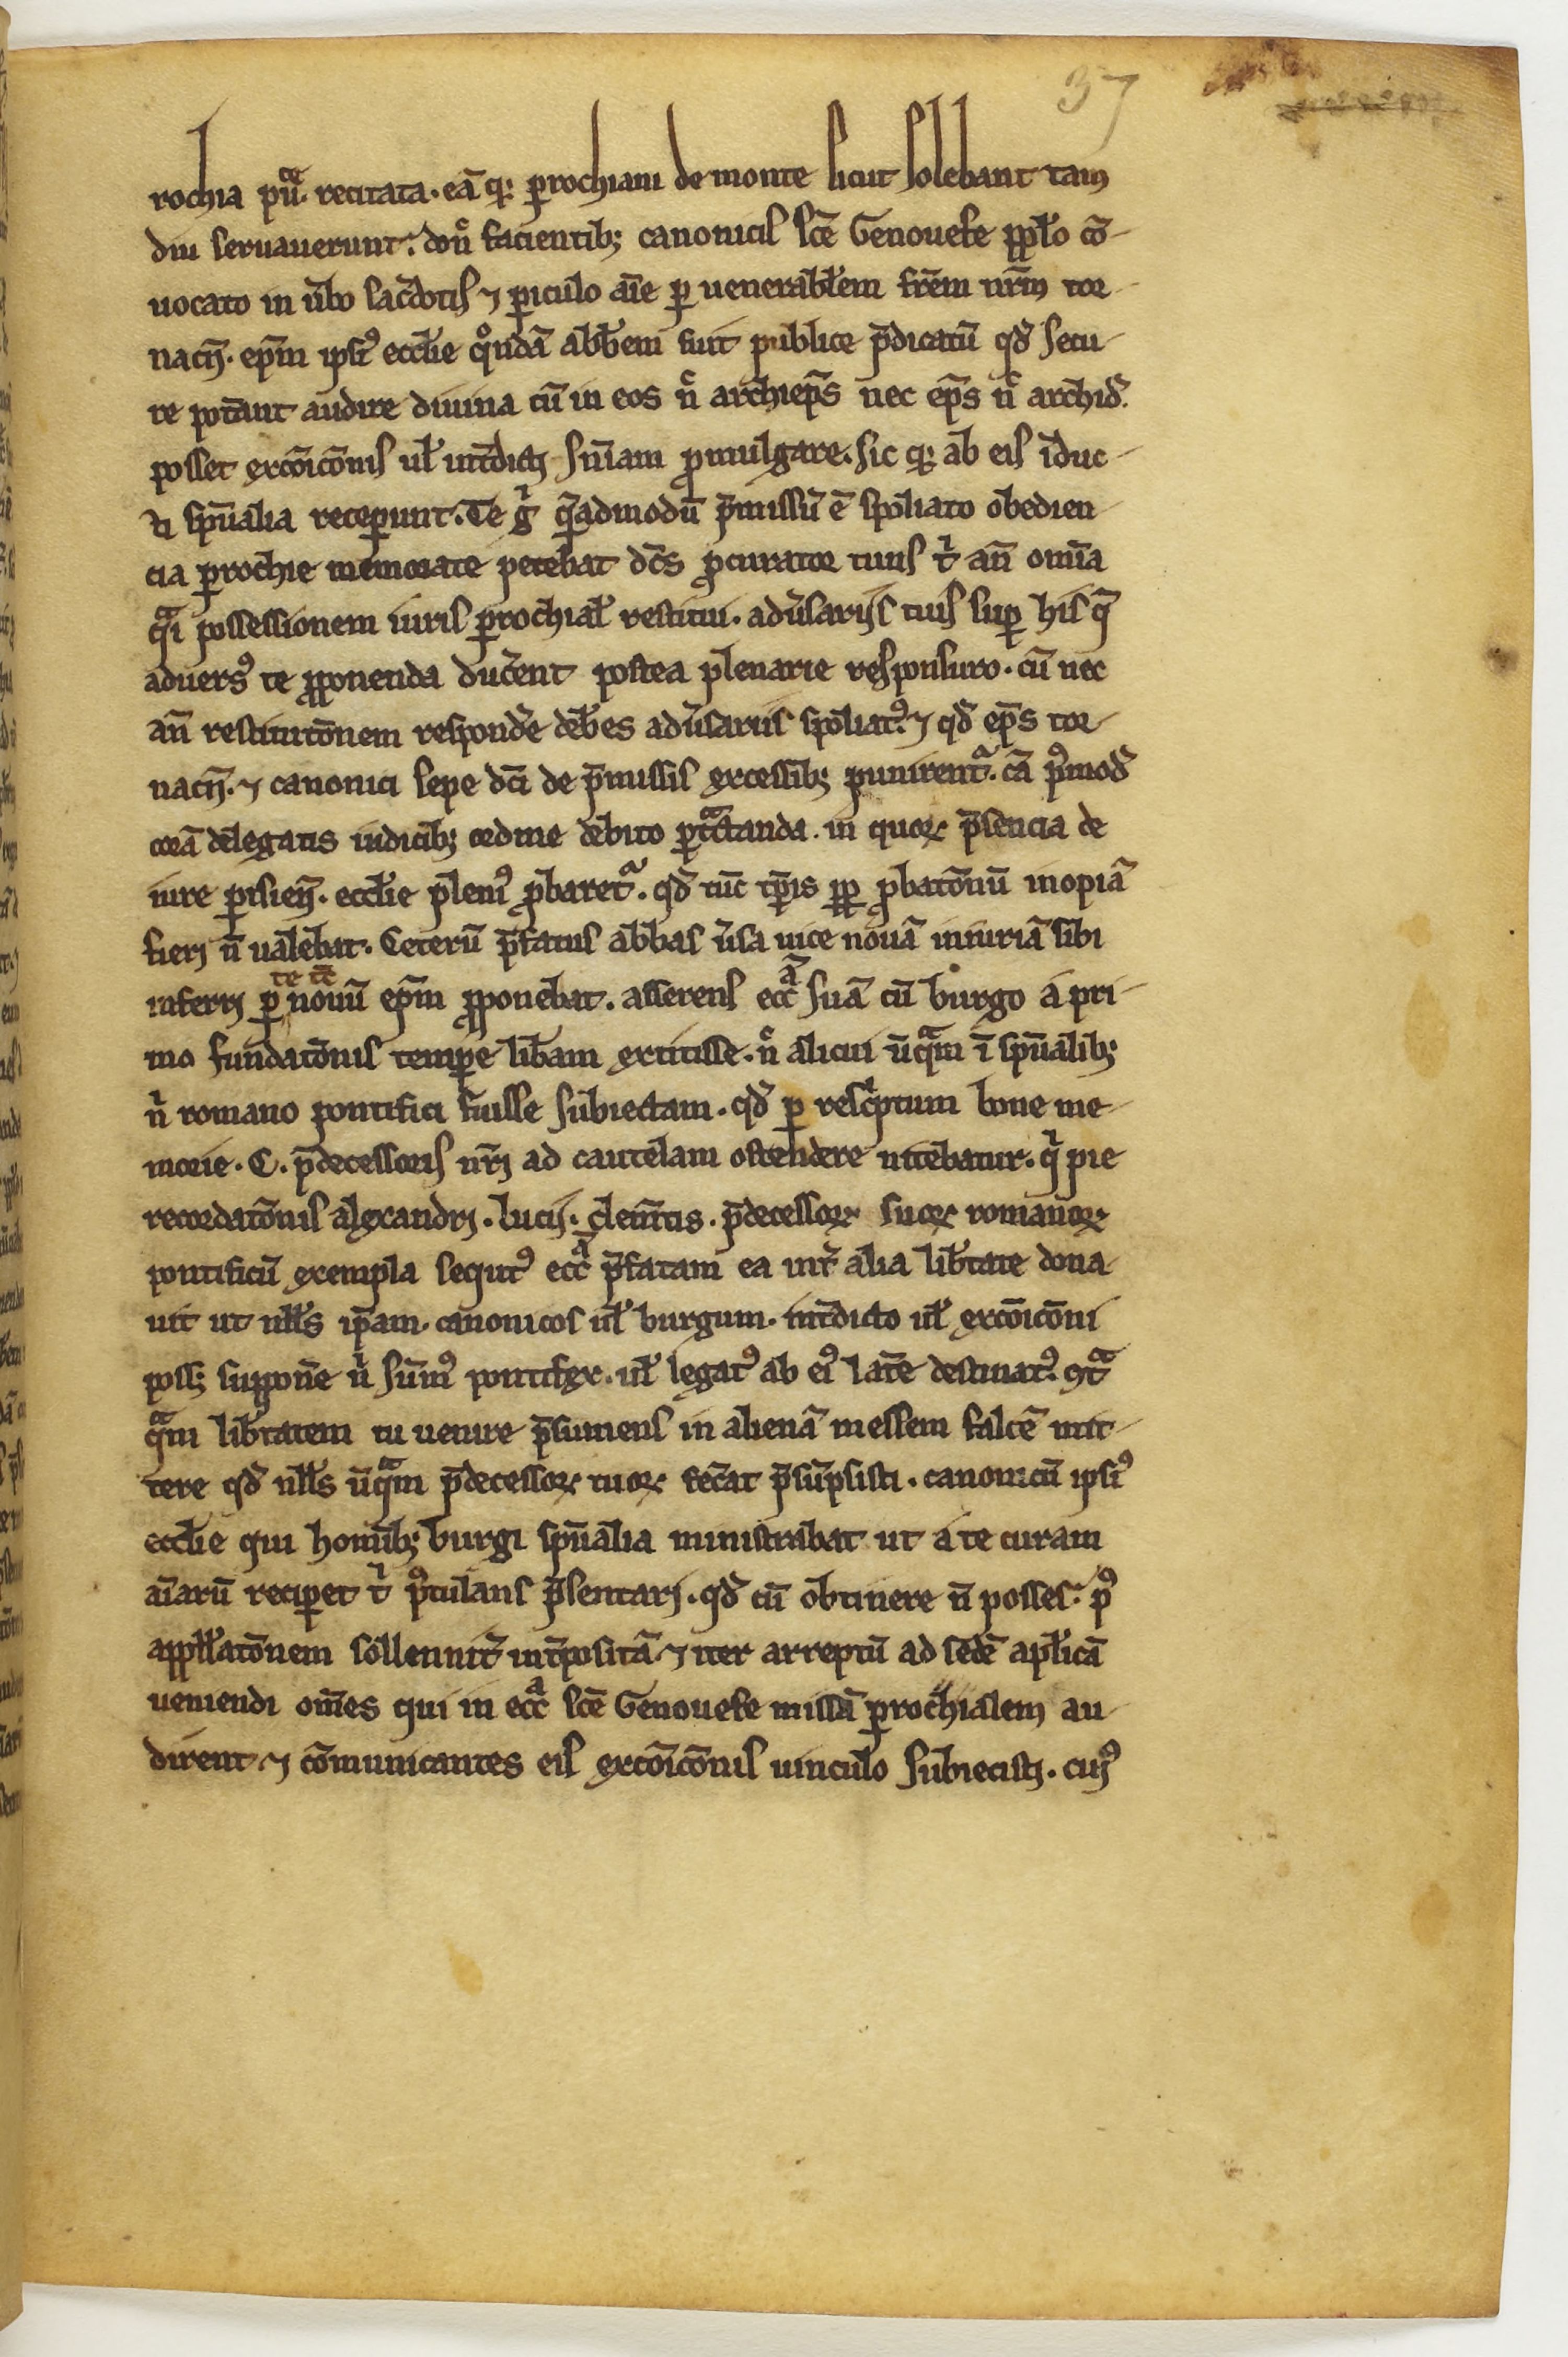 37
rochia pu͞ce. recitata. eā q; ꝑrochiani de monte sicut solebant tam
diu seruauerunt. don̄ facientib; canonicis sc̄e Genouefe pp̄lo cō
uocato in ūbo sac̄dotis ⁊ ꝑiculo aīe ꝑ uenerabl̄em fr̄em nr̄m tor
nacn̄. ep̄m ipsiꝰ eccl̄ie qͦndā abb̄em fuit publice p̄dicatū qd̄ secu
re pot̄ant audire diuina cū in eos nͨ archiep̄s nec ep̄s nͨ archid̄.
posset excōicōnis ul̄ int̄dicti sn̄iam ꝓmulgare. sic q; ab eis īduc
ti sp̄ualia receꝑunt. Te gͥ qͣadmodū p̄missū ē spoliato obedien
cia ꝑrochie memorate petebat dc̄s ꝓcurator tuus tͥ an̄ omīa
qͣi possessionem iuris ꝑrochial̄ restitui. adūsarijs tuis suꝑ his q̄
aduersꝰ te ꝓponenda duc̄ent postea plenarie responsuro. cū nec
an̄ restitutōnem respond̄e deb̄es adūsariis spoliatꝰ. ⁊ qd̄ ep̄s tor
nacn̄. ⁊ canonici sepe dc̄i de p̄missis excessib; punirentᷓ. cā pꝰmod̄
corā delegatis iudicib; ordine debito ꝑtᷓctanda. in quoꝝ p̄sencia de
iure ꝑisien̄. eccl̄ie pleniꝰ ꝓbaretᷓ. qd̄ tūc tp̄is ꝓp ꝓbatōnū inopiā
fieri n̄ ualebat. Ceterū p̄fatus abbas ūsa uice nouā iniuriā sibi
te tc̄
inferri ꝑ nouū ep̄m ꝓponebat. asserens eccᷓ suā cū burgo a pri
mo fundatōnis temꝑe lib̄am extitisse. nͨ alicui ūqͣm ī sp̄ualib;
nͥ romano pontifici fuisse subiectam. qd̄ ꝑ rescͥptum bone me
morie. C. p̄decessoris nr̄i ad cautelam ostendere nitebatur. qͥ pie
recordatōnis alexandri. lucij. clem̄tis. p̄decessoꝝ suoꝝ romanoꝝ
pontificū exempla secutꝰ eccᷓ p̄fatam ea int̄ alia lib̄tate dona
uit ut null̄s ip̄am. canonicos ul̄ burgum. int̄dicto ul̄ excōicōni
poss; suppon̄e nͥ sūmꝰ pontifex. ul̄ legatꝰ ab eiꝰ lat̄e destinatꝰ. ꝯtᷓ
qͣm lib̄tatem tu uenire p̄sumens in alienā messem falcē mit
tere qd̄ null̄s ūqͣm p̄decessoꝝ tuoꝝ fec̄at p̄sūpsisti. canonicū ipsiꝰ
eccl̄ie qui homīb; burgi sp̄ualia ministrabat ut a te curam
aīarū reciꝑet tͥ pꝰtulans p̄sentari. qd̄ cū obtinere n̄ posses. pꝰ
appll̄atōnem sollennit̄ int̄positā. ⁊ iter arreptū ad sedē apl̄icā
ueniendi om̄es qui in eccᷓ sc̄e Genouefe missā ꝑrochialem au
dirent. ⁊ cōmunicantes eis excōicōnis uinculo subiecisti. cuiꝰ